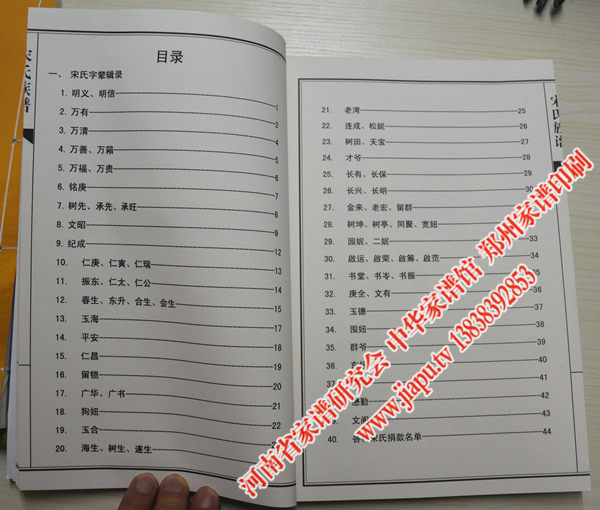 宋氏族谱
目录
一、 宋氏字辈辑录
1. 明义、明信 1
2. 万有 2
3. 万清 4
4. 万善、万箱 6
5. 万福、万贵 7
6. 铭庚 8
7. 树先、承先、承旺 9
8. 文昭 9
9. 纪成 12
10. 仁庚、仁寅、仁瑞 13
11. 振东、仁太、仁公 14
12. 春生、东升、合生、会生 15
13. 玉海 16
14. 平安 17
15. 仁昌 18
16. 留锁 20
17. 广华、广书 21
18. 狗妞
19. 玉合
20. 海生、树生、遂生
宋氏族谱
21. 老湾 25
22. 连成、松妮 26
23. 树田、天宝 27
24. 才爷 28
25. 长有、长保 29
26. 长兴、长明 30
27. 金来、老宏、留群
28. 树坤、树亭、同聚、宽妞
29. 园妮、二妮 33
30. 啟运、啟荣、啟筹、啟范 34
31. 书堂、书岺、书振 35
32. 庚全、文有 36
33. 玉德 37
34. 囤妞 38
35. 群爷 39
40
41
42
43
40. 宋氏捐款名单 44
河南省家谱研究会 中华家谱馆 郑州家谱印刷
www.jiapu.tv 13838392853